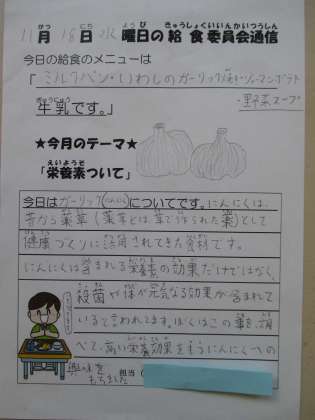 11月18日水曜日の給食委員会通信
今日の給食のメニューは
「ミルクパン・いわしのガーリック焼き・ジャーマンポテト
・野菜スープ
牛乳です。」
★今月のテーマ★
「栄養素ついて」
今日はガーリック(にんにく)についてです。にんにくは、
昔から薬草(薬草とは、草で作られた薬)として
健康づくりに活用されてきた食材です。
にんにくは含まれる栄養素の効果だけではなく、
殺菌や体が元気になる効果が含まれて
いると言われてます。ぼくはこの事を調
べて、高い栄養効果をもつにんにくへの
興味をもちました
担当(